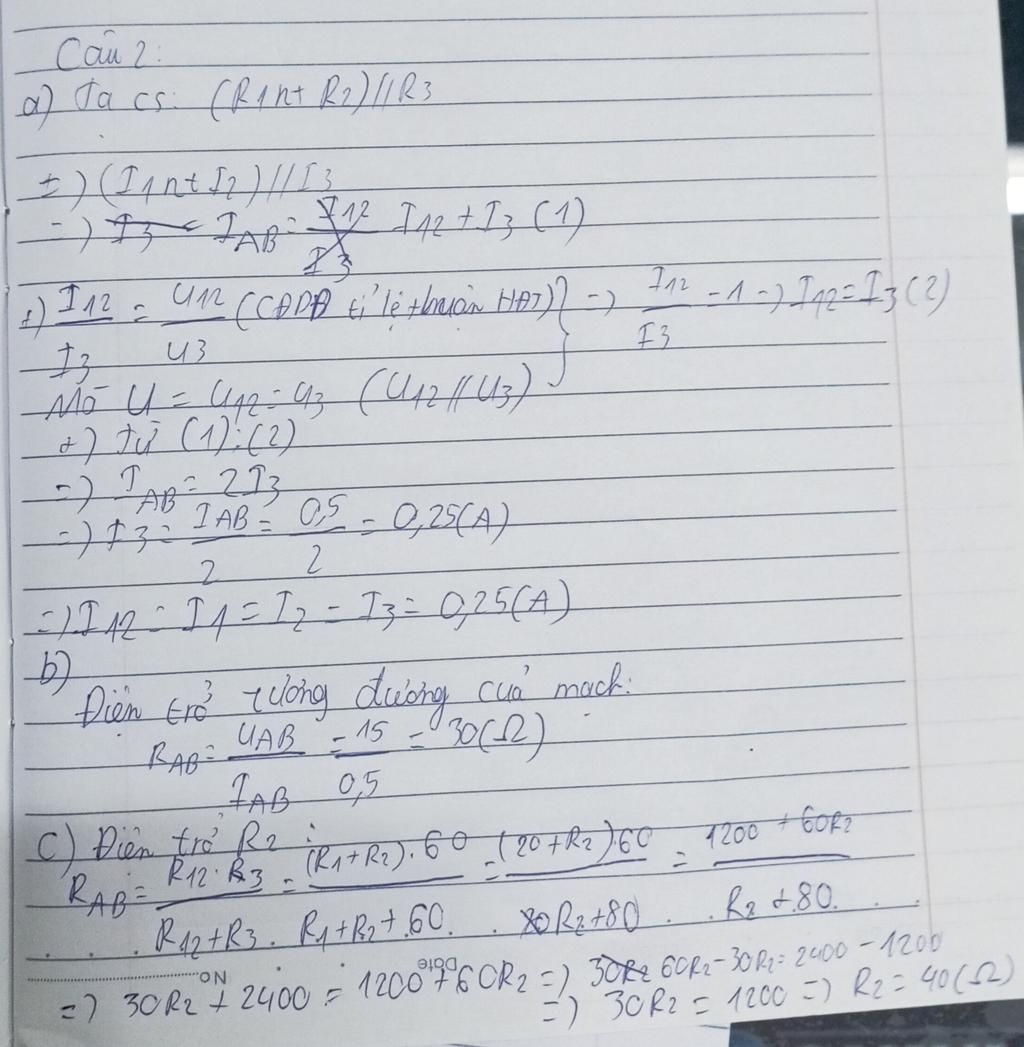 Câu 2:
a) Ta có: (R1nt R2)//R3
+) (I1nt I2)//I3
=) I3 = IAB = I12/I3 I12 + I3 (1)
+) I12/I3 = U12/U3 (CĐDĐ tỉ lệ thuận HĐT) } =) I12/I3 = 1 =) I12 = I3 (2)
Mà U = U12 = U3 (U12//U3)
+) Từ (1);(2)
=) IAB = 2I3
=) I3 = IAB/2 = 0,5/2 = 0,25(A)
=) I12 = I1 = I2 = I3 = 0,25(A)
b)
Điện trở tương đương của mạch:
RAB = UAB/IAB = 15/0,5 = 30(Ω)
c) Điện trở R2:
RAB = R12.R3/R12+R3 = (R1+R2).60/R1+R2+60 = (20+R2).60/R2+80 = 1200+60R2/R2+80
No. Date
=) 30R2 + 2400 = 1200 + 60R2 =) 30R2 60R2 - 30R2 = 2400 - 1200
=) 30R2 = 1200 =) R2 = 40(Ω)